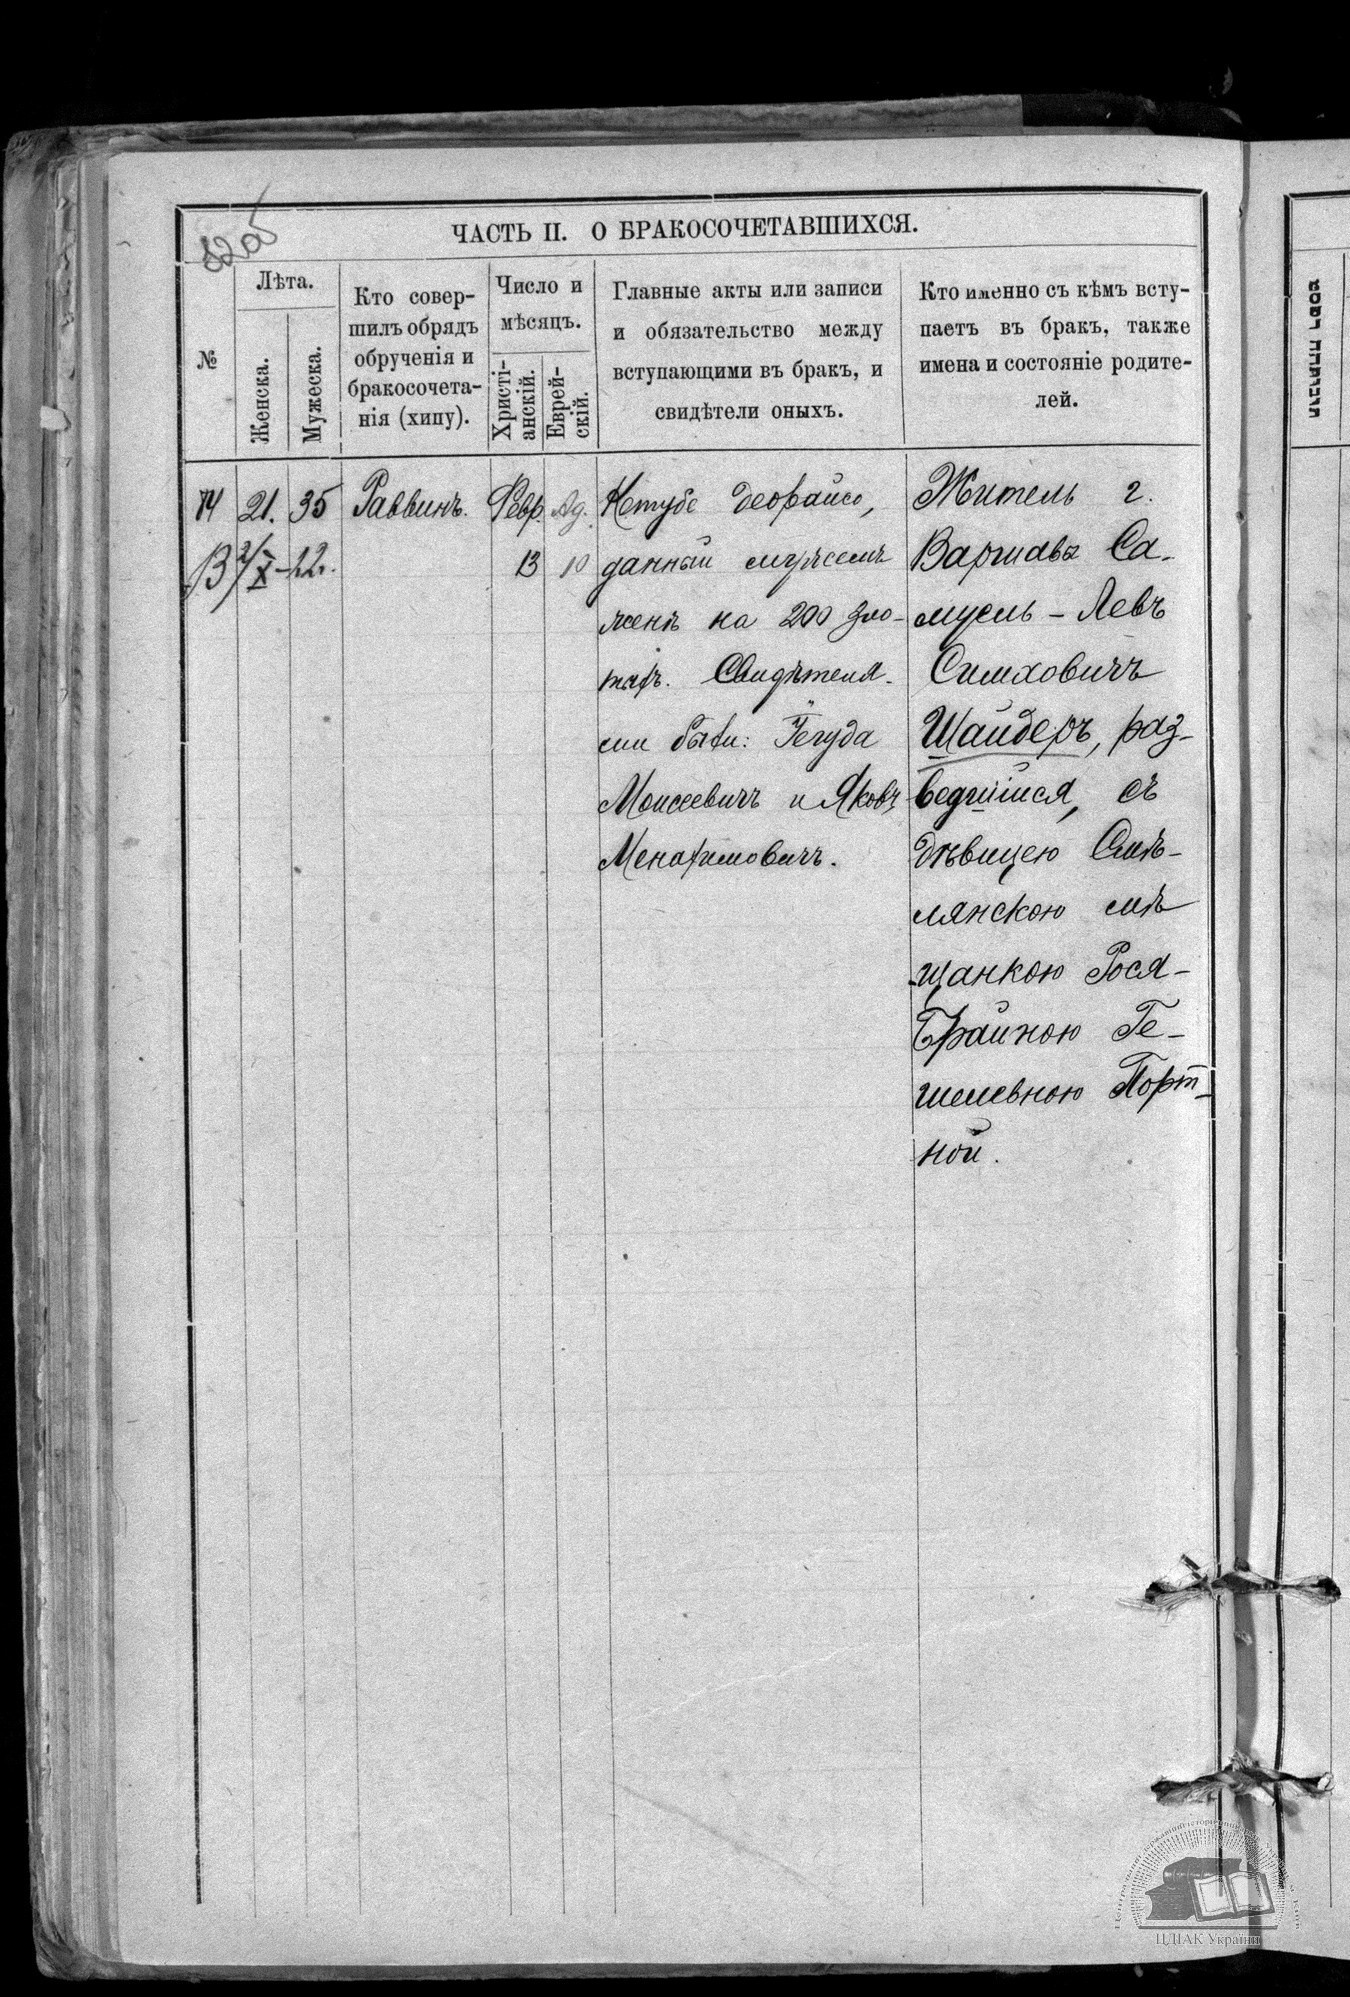 82об
ЧАСТЬ II. О БРАКОСОЧЕТАВШИХСЯ.
№
Лѣта.
Женска.
Мужеска.
Кто совер-
шилъ обрядъ
обрученія и
бракосочета-
нія (хипу).
Число и
мѣсяцъ.
Христі-
анскій.
Еврей-
скій.
Главные акты или записи
и обязательство между
вступающими въ бракъ, и
свидѣтели оныхъ.
Кто именно съ кѣмъ всту-
паетъ въ бракъ, также
имена и состояніе родите-
лей.
14
21.
35
Раввинъ.
Февр.
13
Ад.
10
Кетубе деорайсо,
данный мужемъ
женѣ на 200 зло-
тыхъ. Свидѣтеля-
ми были: Іегуда
Моисеевичъ и Яковъ
Менахимовичъ.
Житель г.
Варшавы Са-
муель-Левъ
Симховичъ
Шайберъ, раз-
ведшійся, съ
дѣвицею Смѣ-
лянскою мѣ
щанкою Рося-
Брайною Ге-
шелевною Порт-
ной.
ЦДІАК України